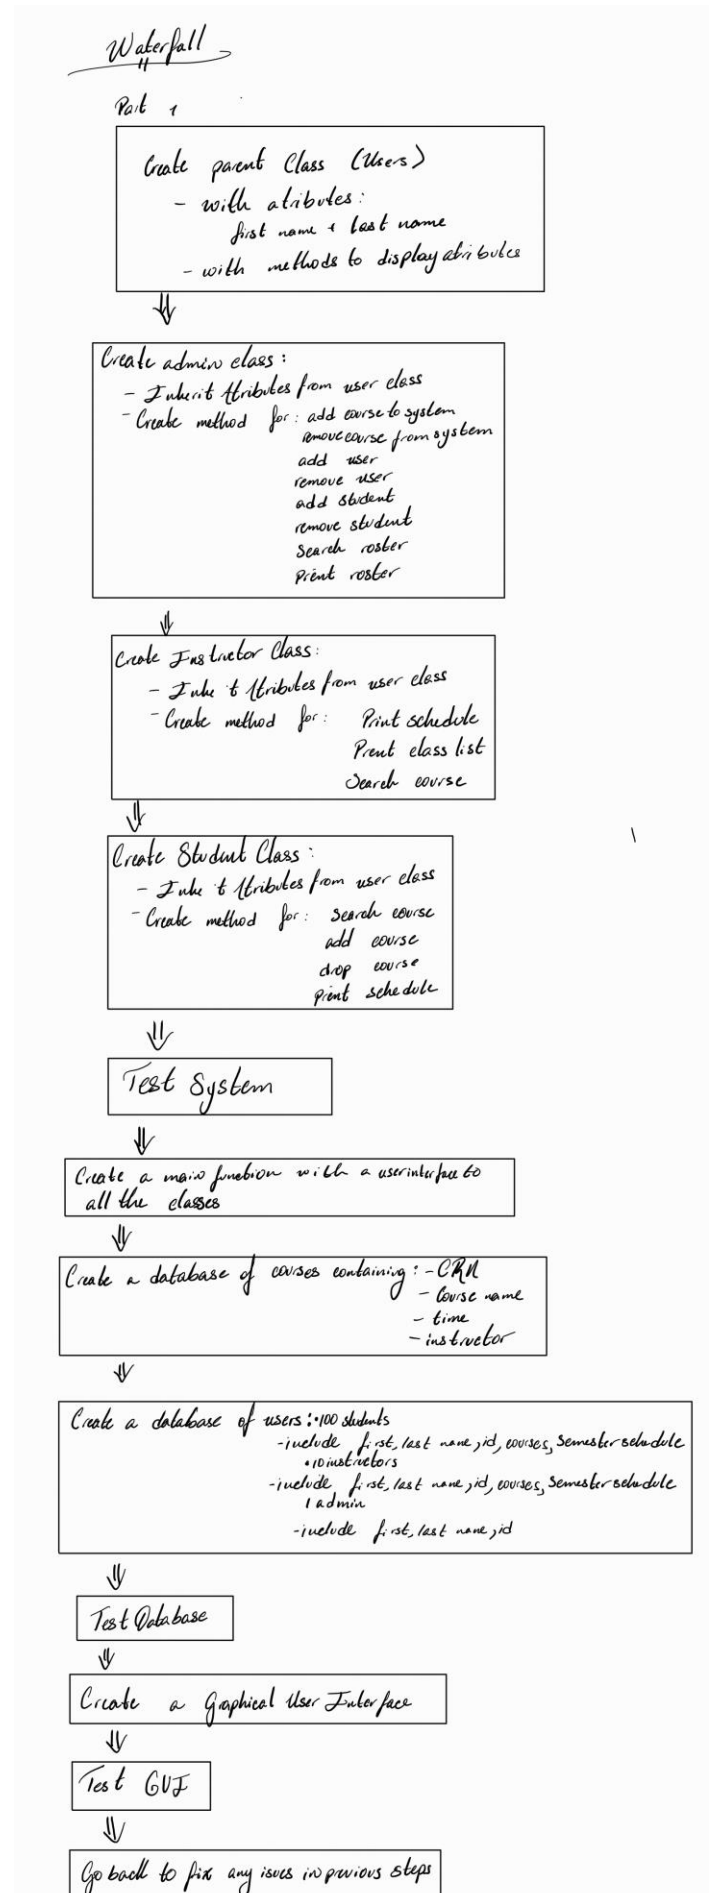 Waterfall
Part 1
Create parent Class (Users)
- with atributes:
first name + last name
- with methods to display atributes
Create admin class:
- Inherit Atributes from user class
- Create method for: add course to system
remove course from system
add user
remove user
add student
remove student
Search roster
Print roster
Create Instructor Class:
- Inhe t Atributes from user class
- Create method for: Print schedule
Print class list
Search course
Create Student Class:
- Inhe t Atributes from user class
- Create method for: Search course
add course
drop course
print schedule
Test System
Create a main function with a userinterface to
all the classes
Create a database of courses containing: - CRN
- Course name
- time
- instructor
Create a database of users: • 100 students
- include first, last name, id, courses, Semester schedule
• 10 instructors
- include first, last name, id, courses, Semester schedule
1 admin
- include first, last name, id
Test Database
Create a Graphical User Interface
Test GUI
Go back to fix any isues in previous steps